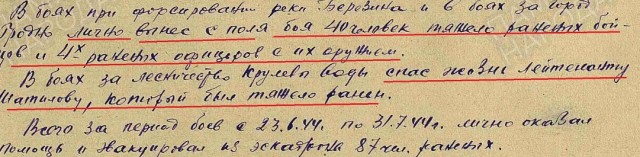 В боях при форсировании реки Березина и в боях за город
лично вынес с поля боя 40 человек тяжело раненых бой-
цов и 4х раненых офицеров с их оружием.
В боях за лесничество Крулевы воды спас жизнь лейтенанту
Шатилову, который был тяжело ранен.
Всего за период боев с 23.6.44. по 31.7.44г. лично оказал
помощь и эвакуировал из эскадрона 87 чел. раненых.